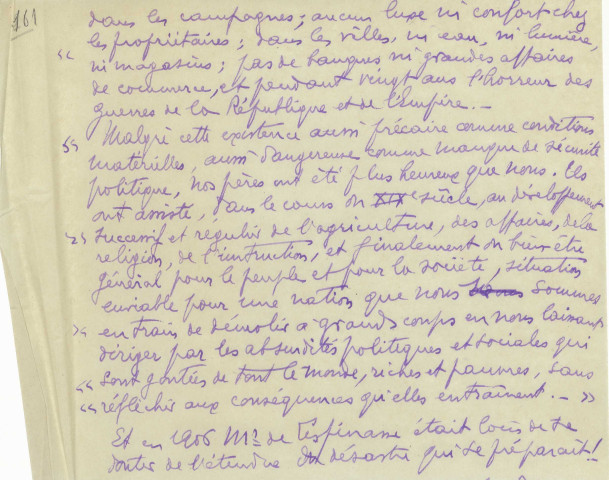 161
dans les campagnes; aucun luxe ni confort chez
les propriétaires; dans les villes, ni eau, ni lumière,
« ni magasins; pas de banques ni grandes affaires
de commerce, et pendant vingt ans l'horreur des
guerres de la République et de l'Empire. —
Malgré cette existence aussi précaire comme conditions
« matérielles, aussi dangereuse comme manque de sécurité
politique, nos pères ont été plus heureux que nous. Ils
ont assisté, dans le cours du XIXe siècle, au développement
« successif et régulier de l'agriculture, des affaires, de la
religion, de l'instruction, et finalement du bien être
général pour le peuple et pour la société, situation
enviable pour une nation que nous sommes
» en train de démolir à grands coups en nous laissant
diriger par les absurdités politiques et sociales qui
« sont goutées de tout le monde, riches et pauvres, sans
« réfléchir aux conséquences qu'elles entraînent. — »
Et en 1906 Mr. de Lespinasse était loin de se
douter de l'étendue du désastre qui se préparait!